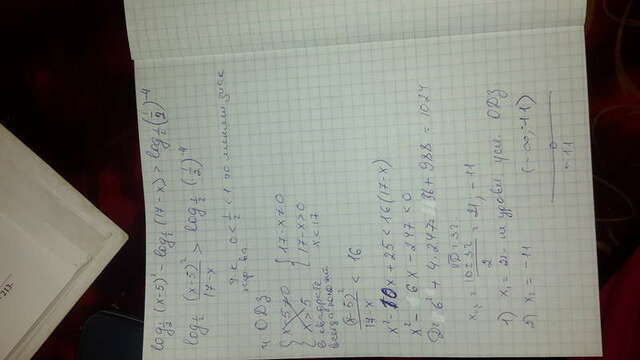 log₁/₂ (x-5)² - log₁/₂ (17-x) > log₁/₂ (1/2)⁻⁴
log₁/₂ (x-5)²/(17-x) > log₁/₂ (1/2)⁻⁴
т.к. 0 < 1/2 < 1 то меняем знак
ОДЗ
{ x-5≠0 { 17-x≠0
{ x>5 { 17-x>0
x<17
в квадрате
(x-5)²/(17-x) < 16
x²-10x+25<16(17-x)
x²-6x-247<0
D=6²+4·247=36+988=1024
√D=32
x₁,₂ = 10±32/2 = 21, -11
1) x₁=21 - не удовл усл. ОДЗ
2) x₂=-11 (-∞;-11)
-11